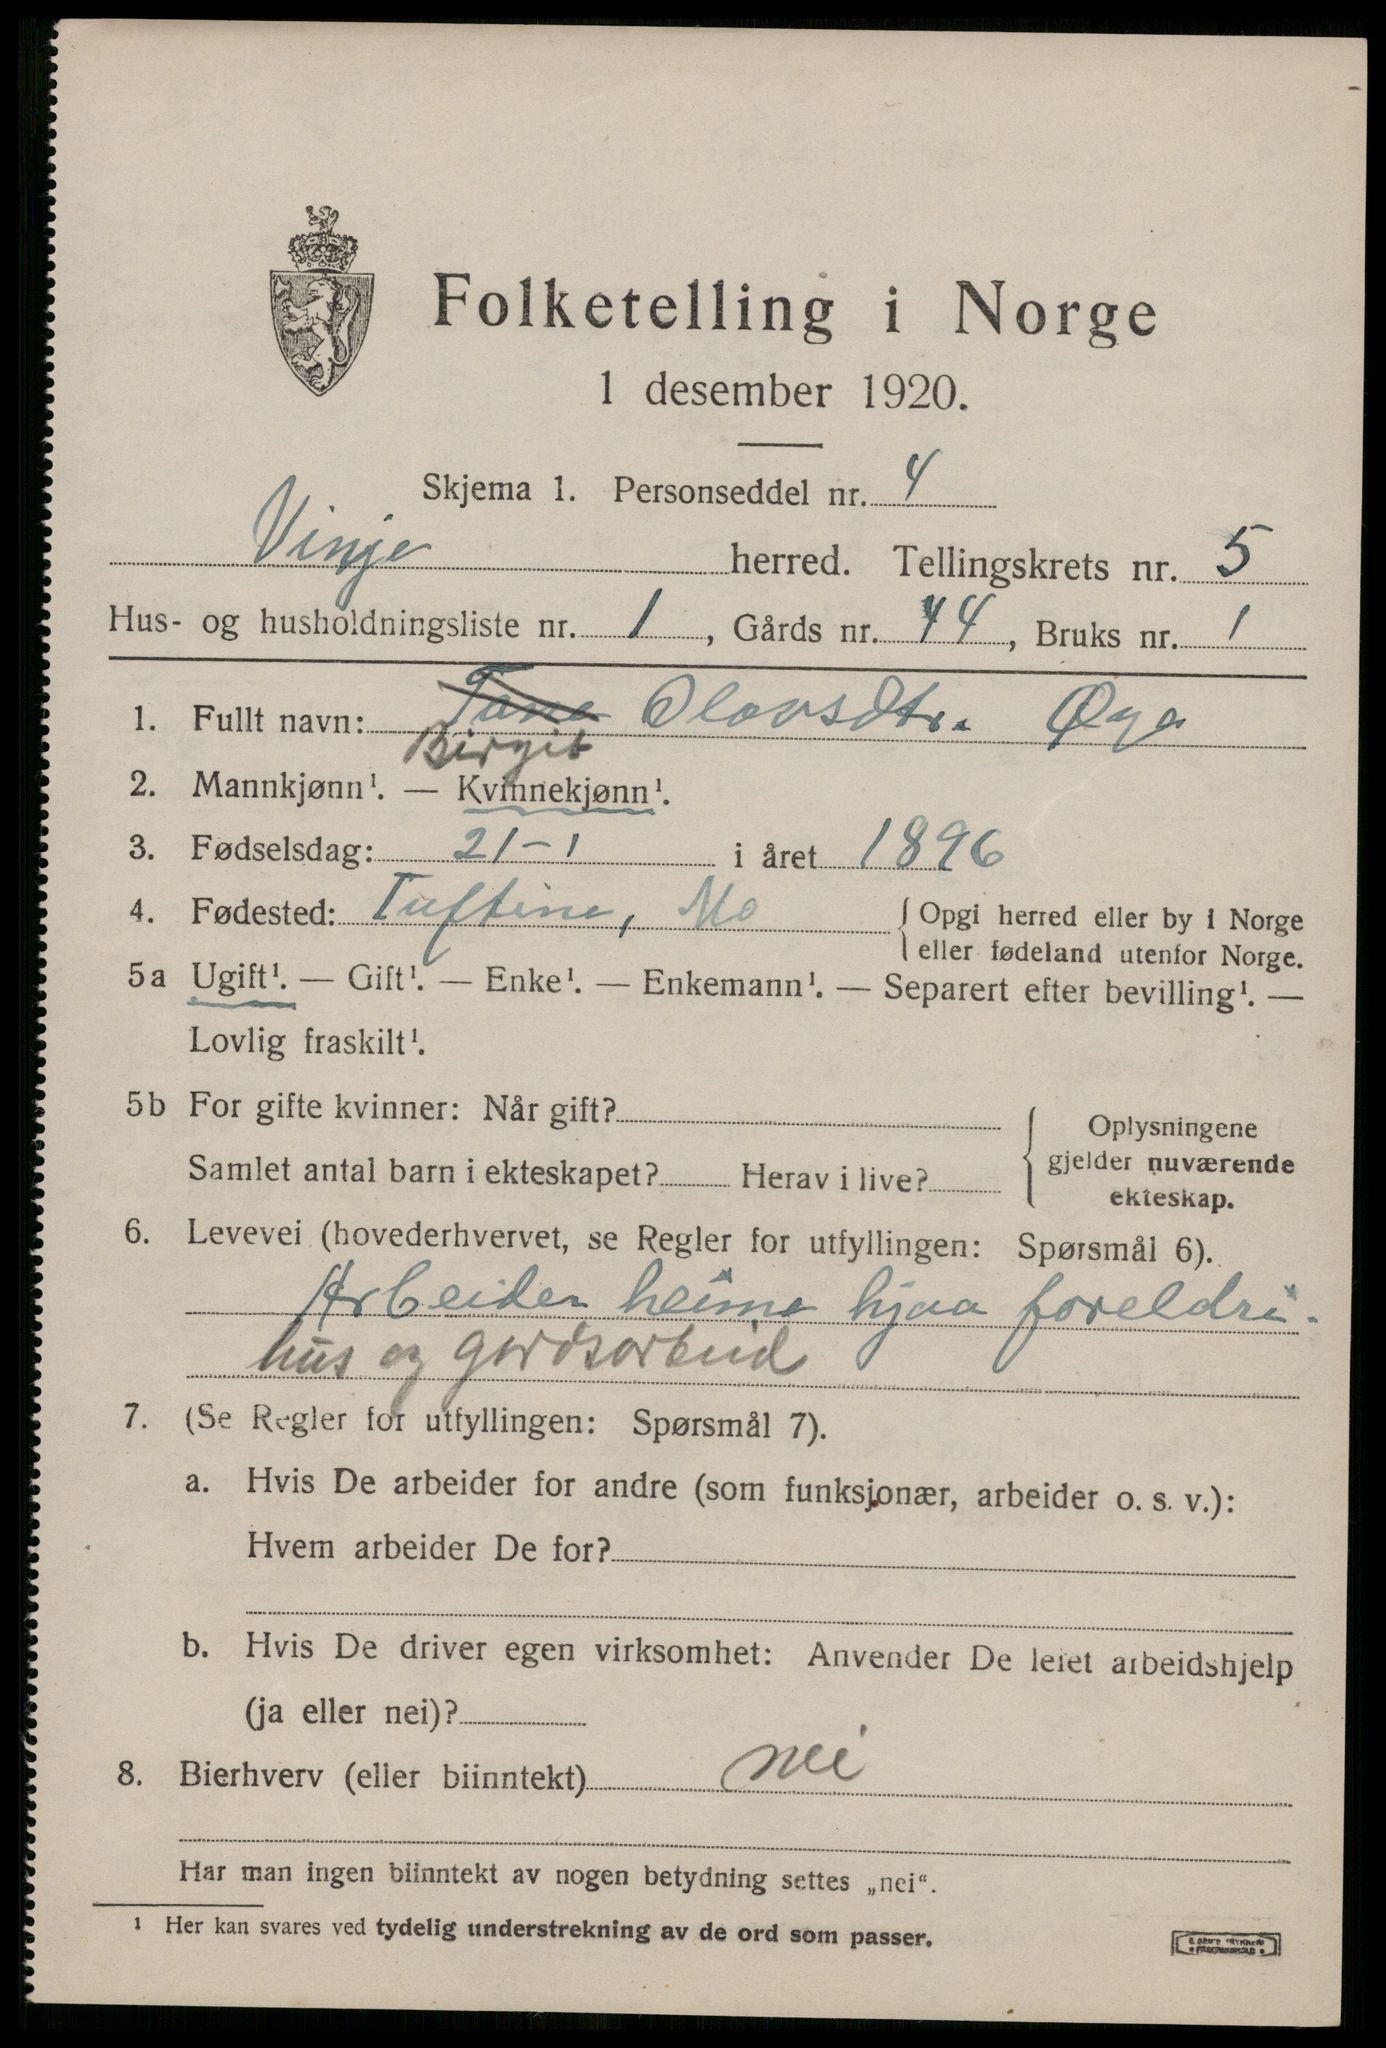 Folketelling i Norge
1 desember 1920.
Skjema 1. Personseddel nr. 4
Vinje herred. Tellingskrets nr. 5
Hus- og husholdningsliste nr. 1, Gårds nr. 44, Bruks nr. 1
1. Fullt navn: Olavsdtr. Øya
Birgit
2. Mannkjønn¹. — Kvinnekjønn¹.
3. Fødselsdag: 21-1 i året 1896
4. Fødested: Tuftine, Mo { Opgi herred eller by i Norge
eller fødeland utenfor Norge.
5a Ugift¹. — Gift¹. — Enke¹. — Enkemann¹. — Separert efter bevilling¹. —
Lovlig fraskilt¹.
5b For gifte kvinner: Når gift?
Samlet antal barn i ekteskapet? Herav i live?
Oplysningene
gjelder nuværende
ekteskap.
6. Levevei (hovederhvervet, se Regler for utfyllingen: Spørsmål 6).
Arbeider heime hjaa foreldri.
hus og gardsarbeid
7. (Se Regler for utfyllingen: Spørsmål 7).
a. Hvis De arbeider for andre (som funksjonær, arbeider o. s. v.):
Hvem arbeider De for?
b. Hvis De driver egen virksomhet: Anvender De leiet arbeidshjelp
(ja eller nei)?
8. Bierhverv (eller biinntekt) nei
Har man ingen biinntekt av nogen betydning settes „nei“.
¹ Her kan svares ved tydelig understrekning av de ord som passer.